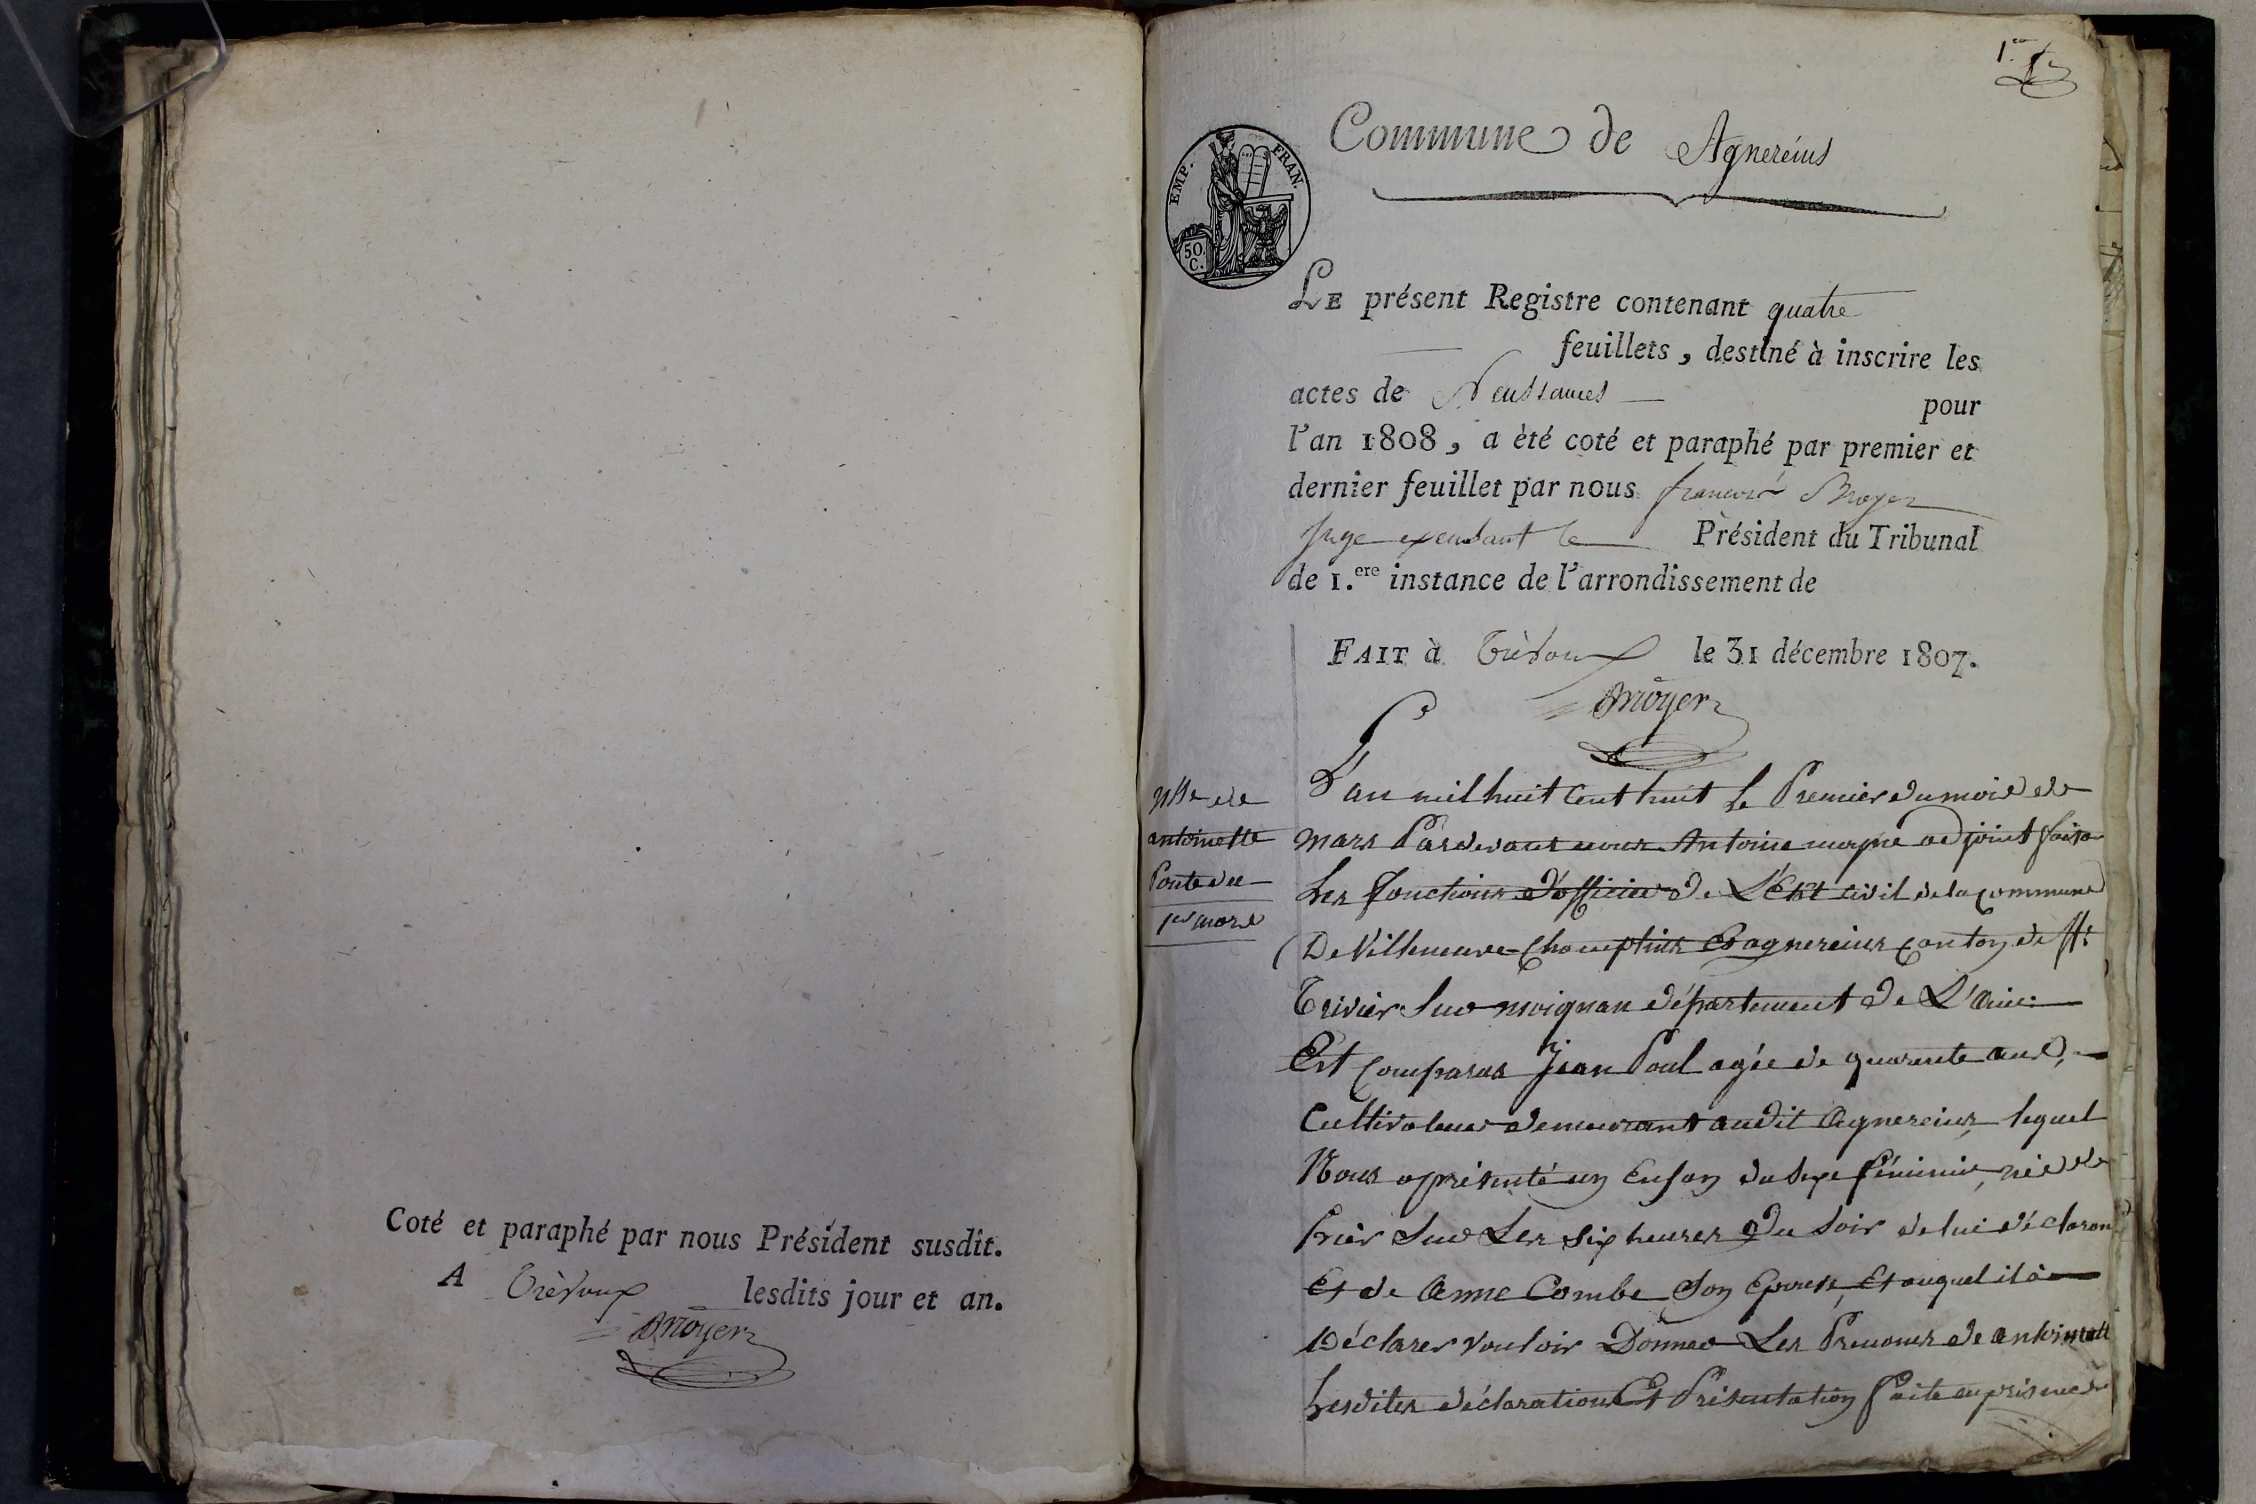 Coté et paraphé par nous Président susdit.
A Trèvoux lesdits jour et an.
Moyer
1.er
Commune de Agnereins
EMP. FRAN.
50.
C.
LE présent Registre contenant quatre
feuillets, destiné à inscrire les
actes de Naissances pour
l'an 1808, a èté coté et paraphé par premier et
dernier feuillet par nous francois Moyer
Juge exerçant le Président du Tribunal
de 1.ere instance de l'arrondissement de
FAIT à Trèvoux le 31 décembre 1807.
Moyer
nsse de
antoinette
Poul du
1er mars
L'an mil huit Cent huit Le Premier du mois de
mars Pardevant nous Antoine adjoint faisan
Les fonctions d'officier de L'état civil de la Commune
De Villeneuve Et agnereins Canton de St
Trivier Sur moignan département de L'ain
Est Comparus Jean Poul agée de quarente ans,
Cultivateur demeurant audit Agnereins lequel
Nous a présenté un Enfan du Sexe féminin, née de
hier Sur Les Six heures Du Soir de lui déclaran
Et de Anne Combe Son Epouse, Et auquel il à
Déclarer vouloir Donner Les Prenoms de antoinett
Lesdites déclaration Et Présentation faite en prisence